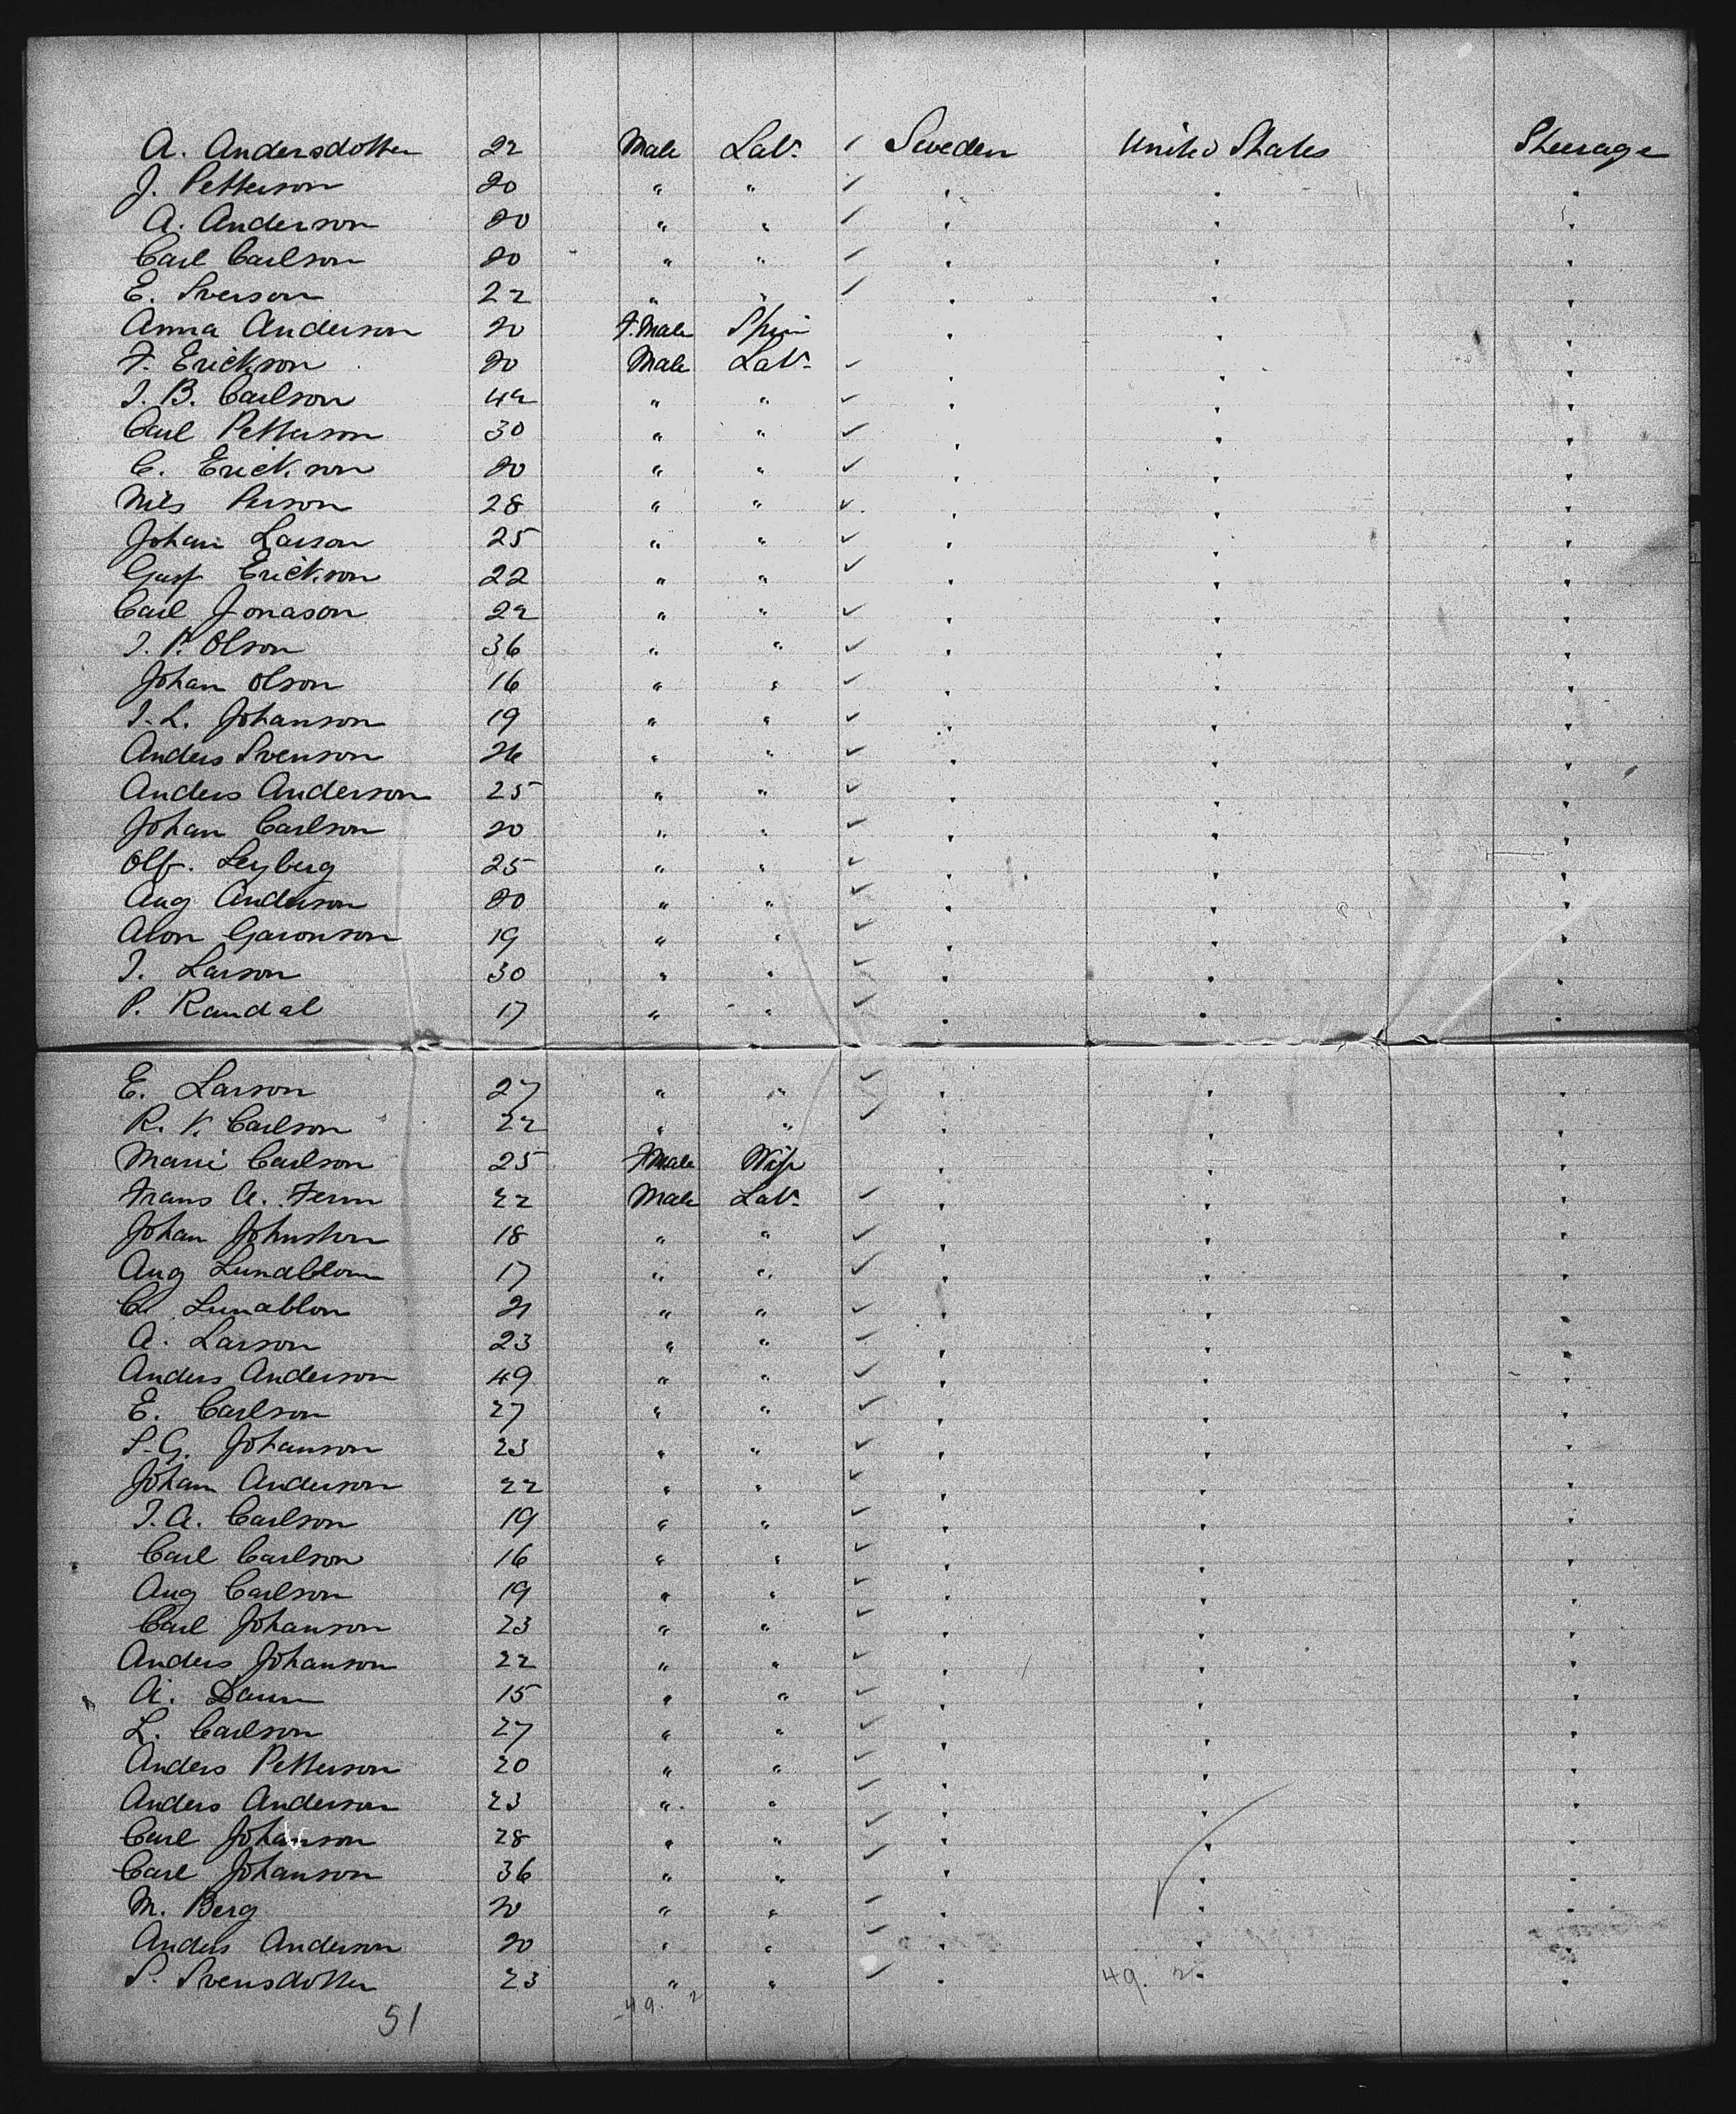 A. Andersdotter 22 Male Labr ✓ Sweden United States Steerage
J. Petterson 20 " " ✓ " " "
A. Anderson 20 " " ✓ " " "
Carl Carlson 20 " " ✓ " " "
E. Sverson 22 " " ✓ " " "
Anna Anderson 20 F.Male Spin " " "
F. Erickson 20 Male Labr ✓ " " "
J. B. Carlson 42 " " ✓ " " "
Carl Petterson 30 " " ✓ " " "
C. Erickson 20 " " ✓ " " "
Nils Person 28 " " ✓ " " "
Johan Larson 25 " " ✓ " " "
Gust Erickson 22 " " ✓ " " "
Carl Jonason 22 " " ✓ " " "
J. P. Olson 36 " " ✓ " " "
Johan Olson 16 " " ✓ " " "
J. L. Johanson 19 " " ✓ " " "
Anders Svenson 26 " " ✓ " " "
Anders Anderson 25 " " ✓ " " "
Johan Carlson 20 " " ✓ " " "
Olf. Leyberg 25 " " ✓ " " "
Aug Anderson 20 " " ✓ " " "
Aron Garonson 19 " " ✓ " " "
J. Larson 30 " " ✓ " " "
P. Randal 17 " " ✓ " " "
E. Larson 27 " " ✓ " " "
R. V. Carlson 22 " " ✓ " " "
Marie Carlson 25 FMale Wife " " "
Frans A. Fernn 22 Male Labr ✓ " " "
Johan Johnston 18 " " ✓ " " "
Aug Lundblom 17 " " ✓ " " "
C. Lundblom 21 " " ✓ " " "
A. Larson 23 " " ✓ " " "
Anders Anderson 49 " " ✓ " " "
E. Carlson 27 " " ✓ " " "
S. G. Johanson 23 " " ✓ " " "
Johan Anderson 22 " " ✓ " " "
J. A. Carlson 19 " " ✓ " " "
Carl Carlson 16 " " ✓ " " "
Aug Carlson 19 " " ✓ " " "
Carl Johanson 23 " " ✓ " " "
Anders Johanson 22 " " ✓ " " "
A. Daun 15 " " ✓ " " "
L. Carlson 27 " " ✓ " " "
Anders Petterson 20 " " ✓ " " "
Anders Anderson 23 " " ✓ " " "
Carl Johanson 28 " " ✓ " " "
Carl Johanson 36 " " ✓ " " "
M. Berg 20 " " ✓ " " "
Anders Anderson 20 " " ✓ " " "
S. Svensdotter 23 " " ✓ " 49. 2 " "
51 49. 2